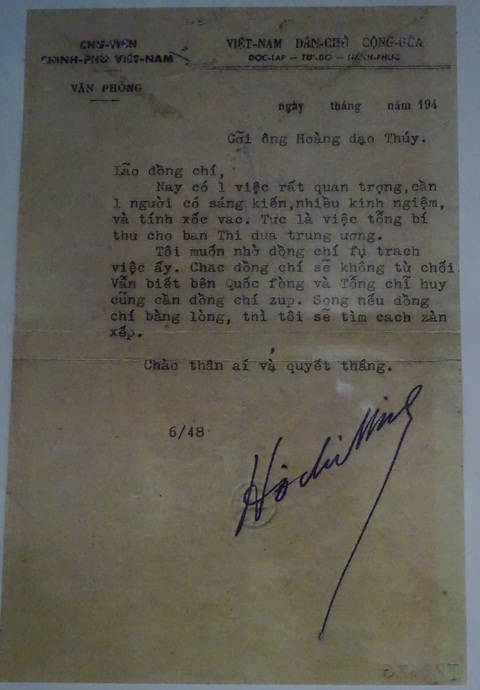 CHỦ-TỊCH
CHÍNH-PHỦ VIỆT-NAM
VĂN PHÒNG
VIỆT-NAM DÂN-CHỦ CỘNG-HÒA
ĐỘC-LẬP — TỰ-DO — HẠNH-PHÚC
ngày tháng năm 194
Gửi ông Hoàng đạo Thúy.
Lão đồng chí,
Nay có 1 việc rất quan trọng,cần
1 người có sáng kiến,nhiều kinh ngiệm,
và tính xốc vac. Tức là việc tổng bí
thư cho ban Thi đua trung ương.
Tôi muốn nhờ đồng chí fụ trach
việc ấy. Chac đồng chí sẽ không từ chối.
Vẫn biết bên Quốc fòng và Tổng chỉ huy
cũng cần đồng chí zup. Song nếu đồng
chí bằng lòng, thì tôi sẽ tìm cach zàn
xếp.
Chào thân aí và quyết tháng.
6/48
Hồ chí Minh